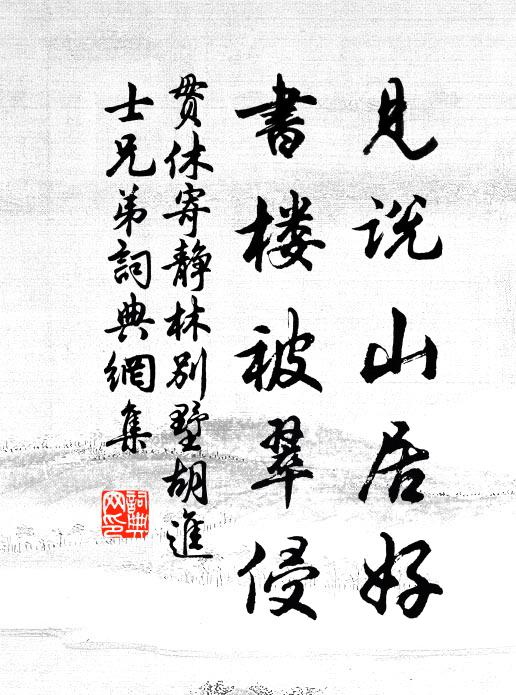 见说山居好
書楼被翠侵
贯休寄静林别墅胡進
士兄弟詞典網集
詞典
网印